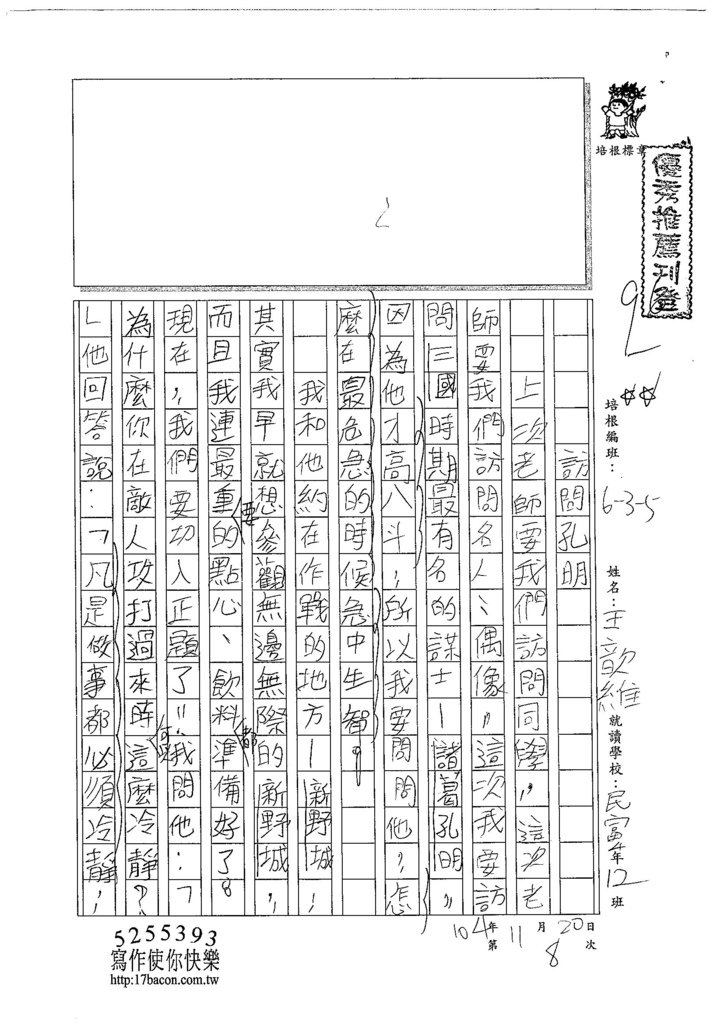 培根標章
優秀推薦刊登
培根編班：6-3-5
姓名：王歆維
就讀學校：民富4年12班
104年11月20日
第8次
訪問孔明
上次老師要我們訪問同學，這次老
師要我們訪問名人、偶像，這次我要訪
問三國時期最有名的謀士—諸葛孔明，
因為他才高八斗，所以我要問問他，怎
麼在最危急的時候急中生智。
我和他約在作戰的地方—新野城，
其實我早就想參觀無邊無際的新野城，
而且我連最重要的點心、飲料都準備好了。
現在，我們要切入正題了！我問他：「
為什麼你在敵人攻打過來時這麼冷靜？
」他回答說：「凡是做事都必須冷靜，
5255393
寫作使你快樂
http:17bacon.com.tw